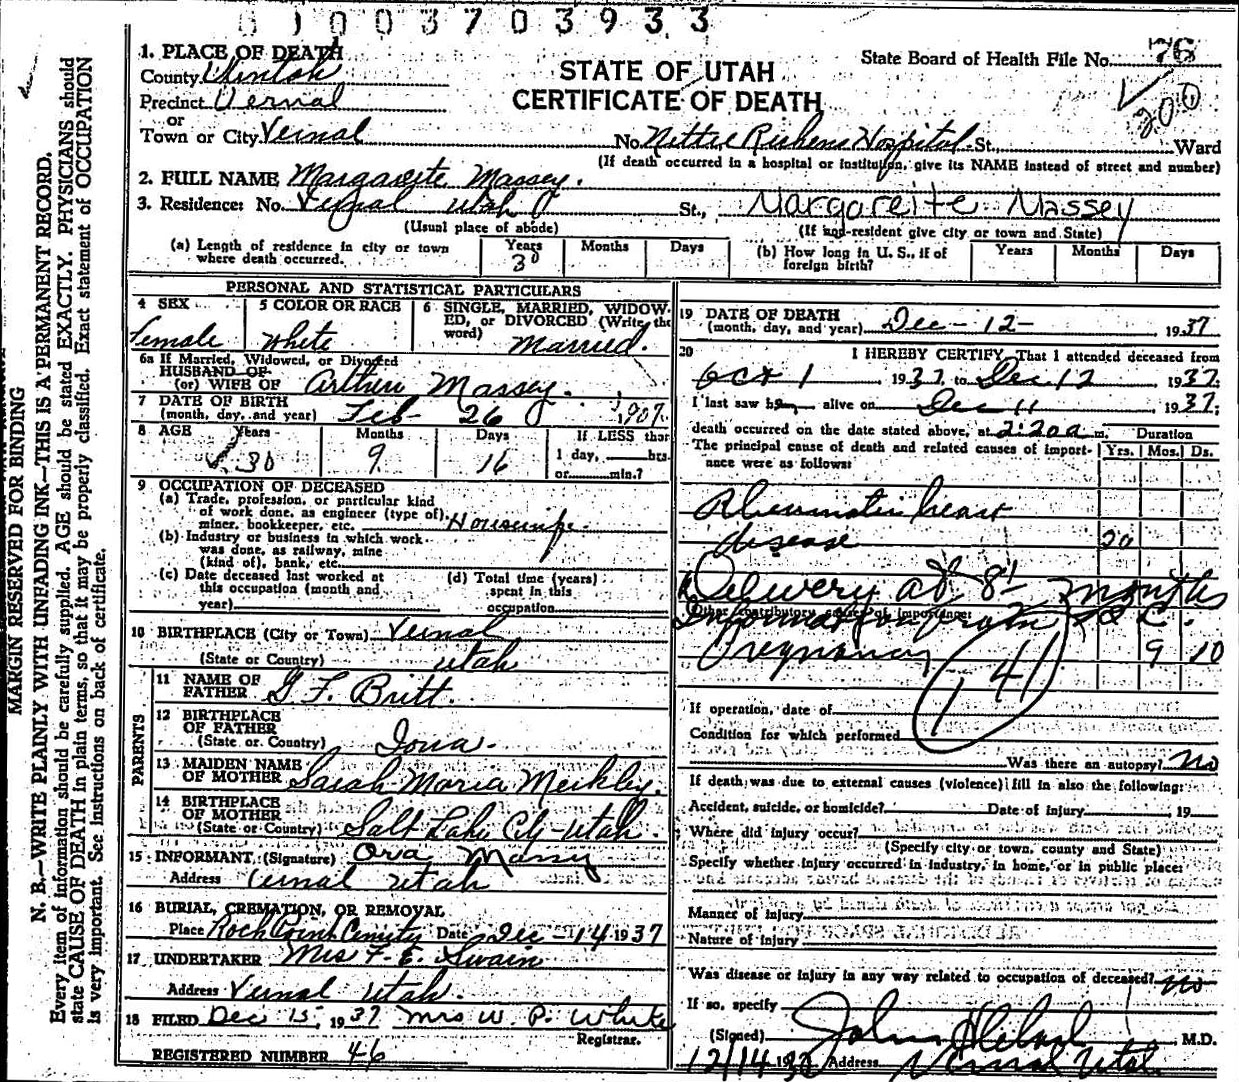 0100370393 3
1. PLACE OF DEATH
State Board of Health File No. 76
County Uintah
STATE OF UTAH
Precinct Vernal
CERTIFICATE OF DEATH
200
or
Town or City Vernal No. Nettie Richens Hospital St., Ward
(If death occurred in a hospital or institution, give its NAME instead of street and number)
2. FULL NAME Margareite Massey.
3. Residence: No. Vernal Utah St., Margareite Massey
(Usual place of abode) (If non-resident give city or town and State)
(a) Length of residence in city or town where death occurred. Years 30 Months Days
(b) How long in U. S., if of foreign birth? Years Months Days
PERSONAL AND STATISTICAL PARTICULARS
4 SEX Female
5 COLOR OR RACE White
6 SINGLE, MARRIED, WIDOWED, or DIVORCED (Write the word) Married.
6a If Married, Widowed, or Divorced
HUSBAND OF
(or) WIFE OF Arthur Massey.
7 DATE OF BIRTH
(month, day, and year) Feb 26 1907.
8 AGE Years 30 Months 9 Days 16 If LESS than 1 day, hrs. or min.?
9 OCCUPATION OF DECEASED
(a) Trade, profession, or particular kind
of work done, as engineer (type of),
miner, bookkeeper, etc. Housewife.
(b) Industry or business in which work
was done, as railway, mine
(kind of), bank, etc.
(c) Date deceased last worked at
this occupation (month and
year)
(d) Total time (years)
spent in this
occupation
10 BIRTHPLACE (City or Town) Vernal
(State or Country) Utah
PARENTS
11 NAME OF
FATHER G F. Britt.
12 BIRTHPLACE
OF FATHER
(State or Country) Iowa.
13 MAIDEN NAME
OF MOTHER Sarah Maria Merkley.
14 BIRTHPLACE
OF MOTHER
(State or Country) Salt Lake City Utah.
15 INFORMANT, (Signature) Ora Massy
Address Vernal Utah
16 BURIAL, CREMATION, OR REMOVAL
Place Rock Point Cemity Date Dec - 14 1937
17 UNDERTAKER Mrs F. E. Swain
Address Vernal Utah.
18 FILED Dec 15, 1937 Mrs W. P. White
Registrar.
REGISTERED NUMBER 46
19 DATE OF DEATH
(month, day, and year) Dec - 12 - 1937
20 I HEREBY CERTIFY, That I attended deceased from
Oct 1 1937 to Dec 12 1937;
I last saw her alive on Dec 11 1937;
death occurred on the date stated above, at 2:20 a m. Duration
The principal cause of death and related causes of importance were as follows: Yrs. Mos. Ds.
Rheumatic heart
disease 20
Delivery at 8½ months
Other contributory causes of importance:
Information from
Pregnancy 9 10
141
If operation, date of
Condition for which performed
Was there an autopsy? No
If death was due to external causes (violence) fill in also the following:
Accident, suicide, or homicide? Date of injury 19
Where did injury occur?
(Specify city or town, county and State)
Specify whether injury occurred in industry, in home, or in public place:
Manner of injury
Nature of injury
Was disease or injury in any way related to occupation of deceased? No
If so, specify
(Signed) M.D.
12/14 Address Vernal Utah.
MARGIN RESERVED FOR BINDING
N. B.—WRITE PLAINLY WITH UNFADING INK—THIS IS A PERMANENT RECORD.
Every item of information should be carefully supplied. AGE should be stated EXACTLY. PHYSICIANS should
state CAUSE OF DEATH in plain terms, so that it may be properly classified. Exact statement of OCCUPATION
is very important. See instructions on back of certificate.